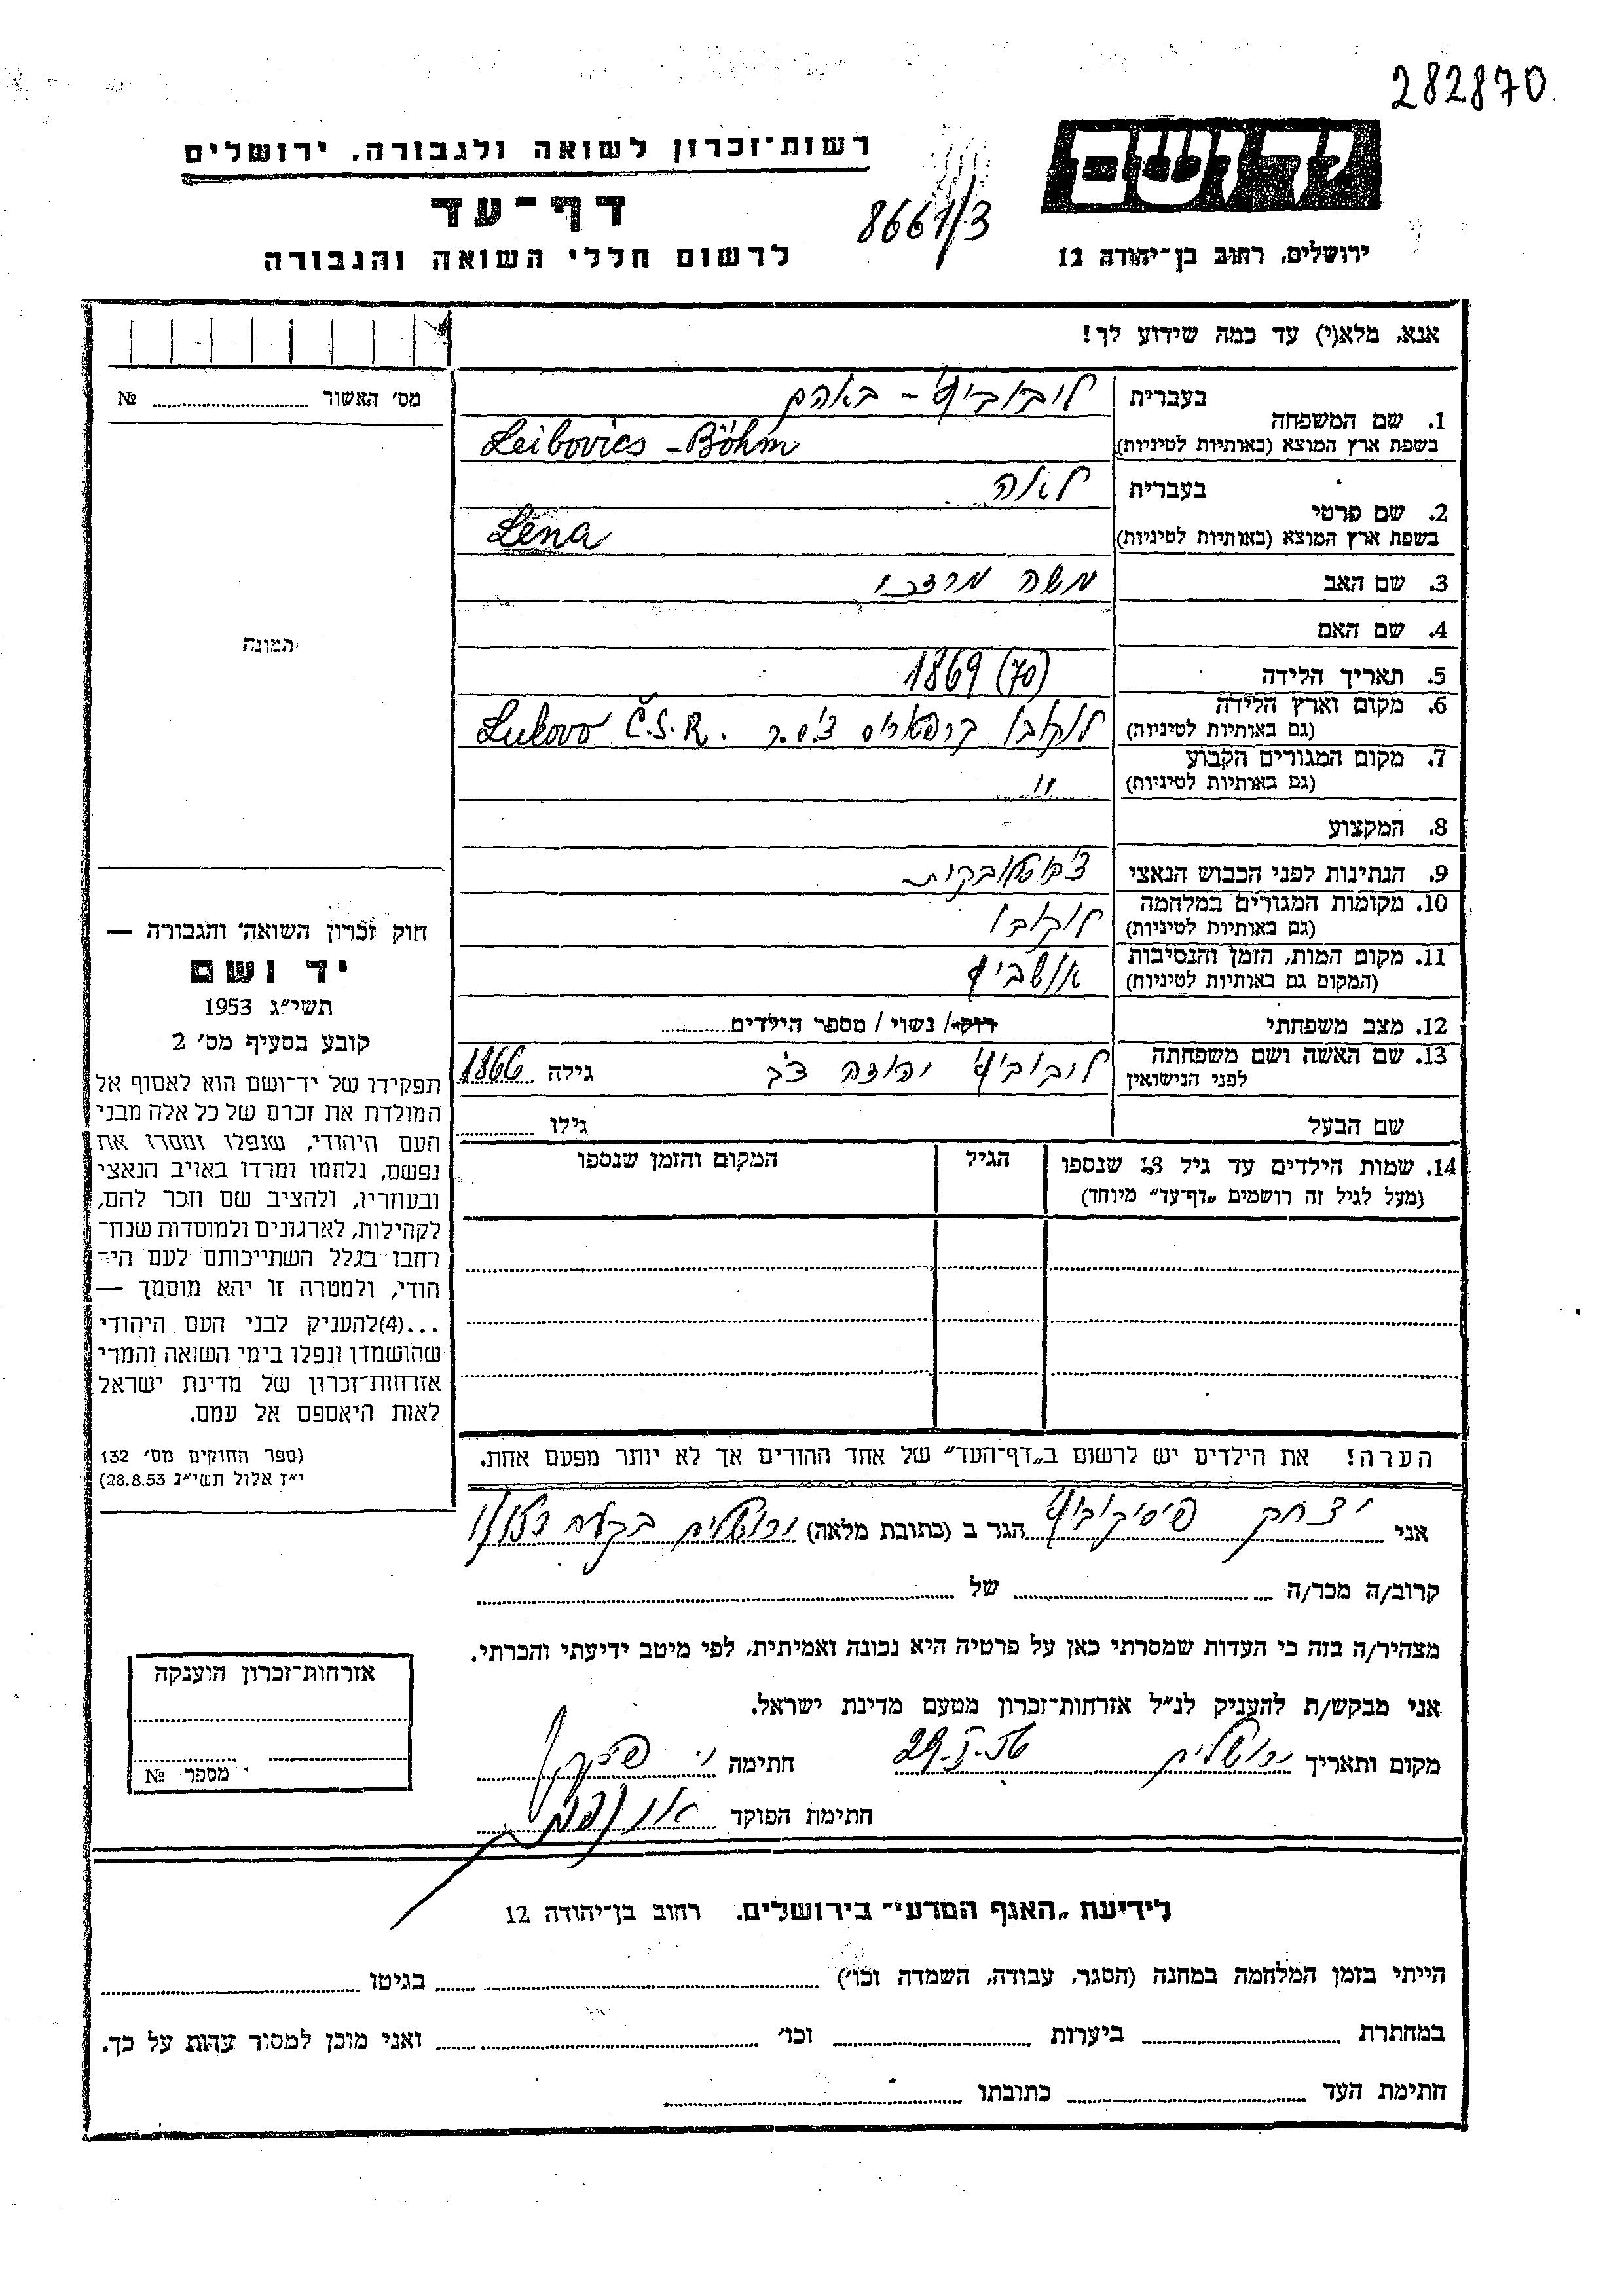 282870
רשות־זכרון לשואה ולגבורה, ירושלים
יד ושם
דף־עד
8661/3
לרשום חללי השואה והגבורה
ירושלים, רחוב בן־יהודה 12
אנא, מלא(י) עד כמה שידוע לך!
מס׳ האשור № ............
1. שם המשפחה
בעברית לייבוביץ - באהם
בשפת ארץ המוצא (באותיות לטיניות) Leibovics - Böhm
2. שם פרטי
בעברית לאה
בשפת ארץ המוצא (באותיות לטיניות) Lena
3. שם האב משה מרדכי
4. שם האם
5. תאריך הלידה 1869 (70)
6. מקום וארץ הלידה
(גם באותיות לטיניות) לוקובו קרפטים צ.ס.ר. Lukovo Č.S.R.
7. מקום המגורים הקבוע
(גם באותיות לטיניות) "
8. המקצוע
9. הנתינות לפני הכבוש הנאצי
10. מקומות המגורים במלחמה
(גם באותיות לטיניות) לוקובו
11. מקום המות, הזמן והנסיבות
(המקום גם באותיות לטיניות) אושביץ
12. מצב משפחתי רווק / נשוי / מספר הילדים............
13. שם האשה ושם משפחתה
לפני הנישואין לייבוביץ יהודה צבי גילה 1866
שם הבעל גילו ............
14. שמות הילדים עד גיל 18 שנספו
(מעל לגיל זה רושמים „דף־עד” מיוחד)
הגיל
המקום והזמן שנספו
הערה! את הילדים יש לרשום ב„דף־העד” של אחד ההורים אך לא יותר מפעם אחת.
תמונה
חוק זכרון השואה והגבורה —
יד ושם
תשי״ג 1953
קובע בסעיף מס׳ 2
תפקידו של יד־ושם הוא לאסוף אל
המולדת את זכרם של כל אלה מבני
העם היהודי, שנפלו ומסרו את
נפשם, נלחמו ומרדו באויב הנאצי
ובעוזריו, ולהציב שם וזכר להם,
לקהילות, לארגונים ולמוסדות שנח־
רחבו בגלל השתייכותם לעם הי־
הודי, ולמטרה זו יהא מוסמך —
...(4)להעניק לבני העם היהודי
שהושמדו ונפלו בימי השואה והמרי
אזרחות־זכרון של מדינת ישראל
לאות היאספם אל עמם.
(ספר החוקים מס׳ 132
י״ז אלול תשי״ג 28.8.53)
אני יצחק הגר ב (כתובת מלאה) ירושלים
קרוב/ה מכר/ה ............ של ............
מצהיר/ה בזה כי העדות שמסרתי כאן על פרטיה היא נכונה ואמיתית, לפי מיטב ידיעתי והכרתי.
אני מבקש/ת להעניק לנ״ל אזרחות־זכרון מטעם מדינת ישראל.
מקום ותאריך ירושלים 29.I.56 חתימה
חתימת הפוקד
אזרחות־זכרון הוענקה
מספר №
לידיעת „האגף המדעי” בירושלים. רחוב בן־יהודה 12
הייתי בזמן המלחמה במחנה (הסגר, עבודה, השמדה וכו׳) ............ בגיטו ............
במחתרת ............ ביערות ............ וכו׳ ............ ואני מוכן למסור עדות על כך.
חתימת העד ............ כתובתו ............